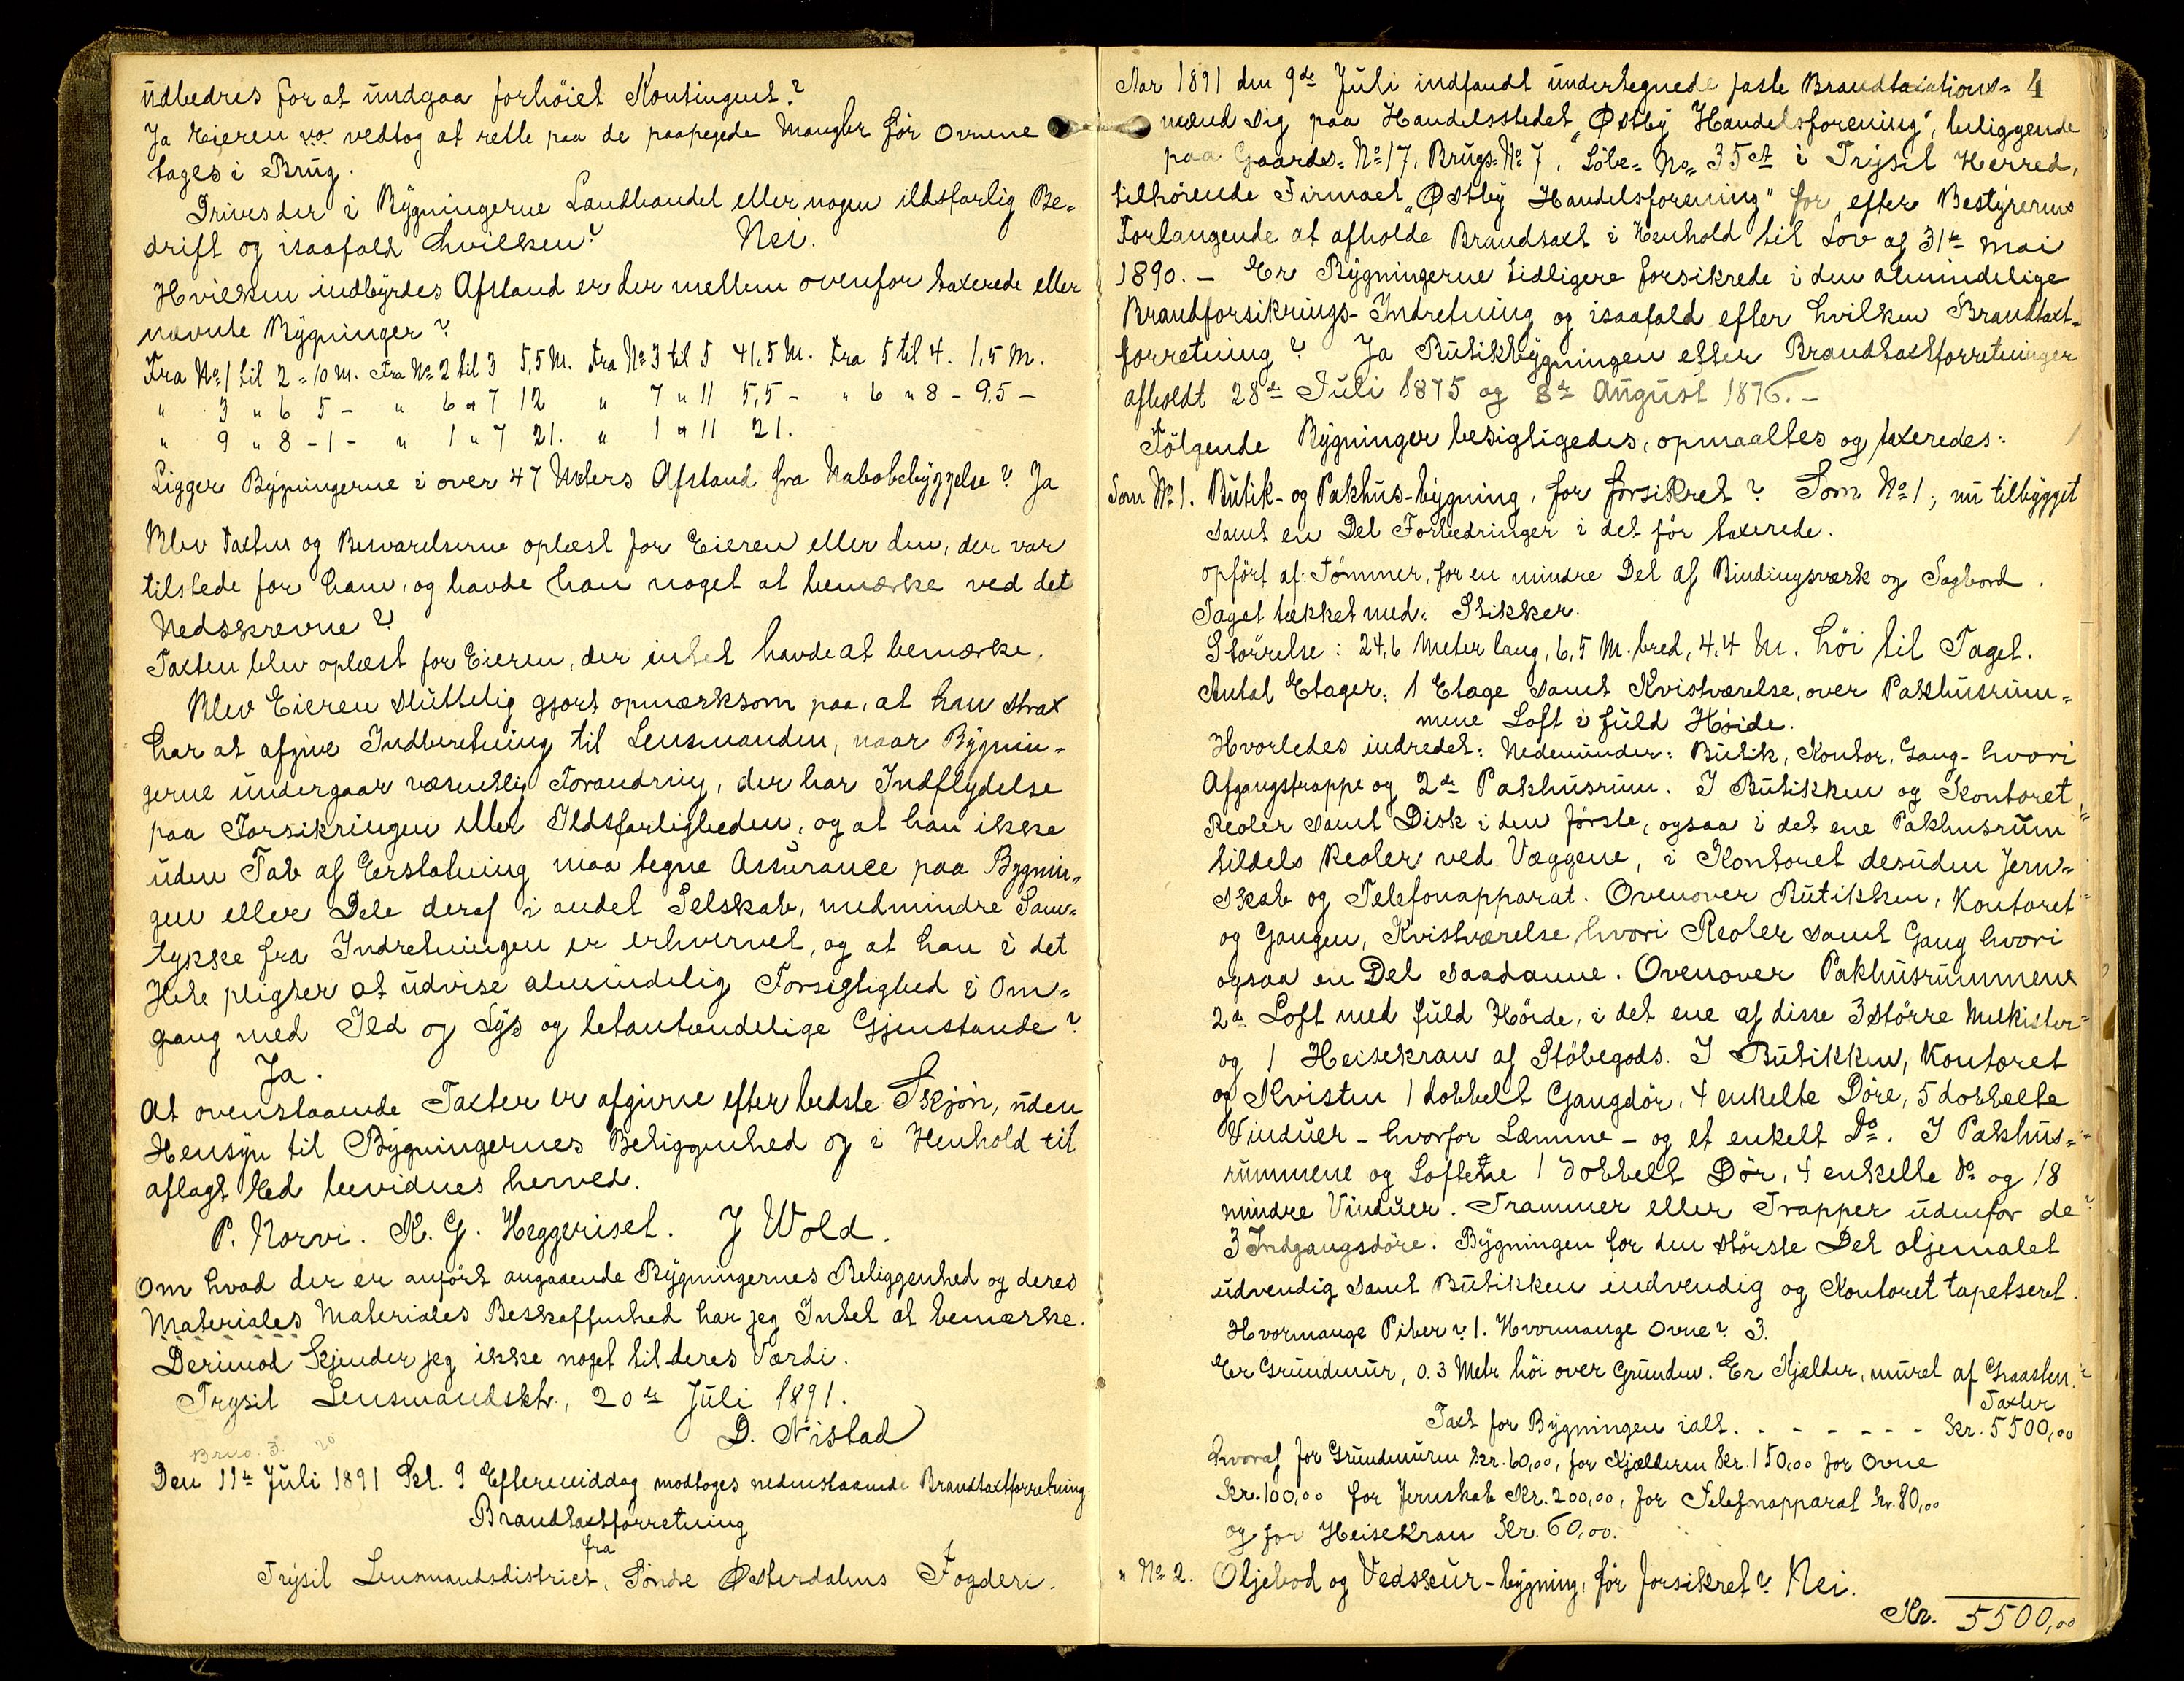 udbedres for at undgaa forhöiet Kontingent?
Ja Eieren vo. vedtog at rette paa de paapegede Mangler för Ovnene
tages i Brug.
Drives der i Bygningerne Landhandel eller nogen ildsfarlig Be-
drift og isaafald hvilken? Nei.
Hvilken indbyrdes Afstand er der mellem ovenfor taxerede eller
nævnte Bygninger?
Fra No 1 til 2 = 10 M. Fra No 2 til 3 5,5 M. Fra No 3 til 5 41,5 M. Fra 5 til 4. 1,5 M.
" 3 " 6 5 - " 6 " 7 12 " 7 " 11 5,5 - " 6 " 8 - 9,5 -
" 9 " 8 - 1 - " 1 " 7 21. " 1 " 11 21.
Ligger Bygningerne i over 47 Meters Afstand fra Nabobebyggelse? Ja
Blev Taxten og Besvarelserne oplæst for Eieren eller den, der var
tilstede for ham, og havde han noget at bemærke ved det
Nedskrevne?
Taxten blev oplæst for Eieren, der intet havde at bemærke.
Blev Eieren sluttelig gjort opmærksom paa, at han strax
har at afgive Indberetning til Lensmanden, naar Bygnin-
gerne undergaar væsentlig Forandring, der har Indflydelse
paa Forsikringen eller Ildsfarligheden, og at han ikke
uden Tab af Erstatning maa tegne Assurance paa Bygnin-
gen eller Dele deraf i andet Selskab, medmindre Sam-
tykke fra Indretningen er erhvervet, og at han i det
Hele pligter at udvise almindelig Forsigtighed i Om-
gang med Ild og Lys og letantændelige Gjenstande?
Ja.
At ovenstaaende Taxter er afgivne efter bedste Skjön, uden
Hensyn til Bygningernes Beliggenhed og i Henhold til
aflagt Ed bevidnes herved.
P. Norvi. K. G. Heggeriset. J Wold.
Om hvad der er anfört angaaende Bygningernes Beliggenhed og deres
Materiales Materiales Beskaffenhed har jeg Intet at bemærke.
Derimod kjender jeg ikke noget til deres Værdi.
Trysil Lensmandsktr., 20de Juli 1891.
D. Nistad
Brvo. 3. 20
Den 11te Juli 1891 Kl. 9 Eftermiddag modtoges nedenstaaende Brandtaxtforretning.
Brandtaxtforretning
fra
Trysil Lensmandsdistrict, Söndre Østerdalens Fogderi.
Aar 1891 den 9de Juli indfandt undertegnede faste Brandtaxations- 4
mænd sig paa Handelsstedet "Østby Handelsforening", beliggende
paa Gaards-No 17, Brugs-No 7, Löbe-No 35 a i Trysil Herred,
tilhörende Firmaet "Østby Handelsforening" for efter Bestyrerens
Forlangende at afholde Brandtaxt i Henhold til Lov af 31te Mai
1890. - Er Bygningerne tidligere forsikrede i den almindelige
Brandforsikrings-Indretning og isaafald efter hvilken Brandtaxt-
forretning? Ja Butikbygningen efter Brandtaxtforretninger
afholdt 28de Juli 1875 og 8de August 1876. -
Fölgende Bygninger besigtigedes, opmaaltes og taxeredes:
Som No 1. Butik- og Pakhus-bygning, för forsikret? Som No 1, nu tilbygget
samt en Del Forbedringer i det för taxerede.
opfört af: Tömmer, for en mindre Del af Bindingsværk og Sagbord.
Taget tækket med: Stikker.
Störrelse: 24,6 Meter lang, 6,5 M. bred, 4,4 M. höi til Taget.
Antal Etager: 1 Etage samt Kvistværelse, over Pakhusrum-
mene Loft i fuld Höide.
Hvorledes indredet: Nedenunder: Butik, Kontor, Gang - hvori
Afgangstrappe og 2de Pakhusrum. I Butikken og Kontoret
Reoler samt Disk i den förste, ogsaa i det ene Pakhusrum
tildels Reoler ved Væggene, i Kontoret desuden Jern-
skab og Telefonapparat. Ovenover Butikken, Kontoret
og Gangen, Kvistværelse hvori Reoler samt Gang hvori
ogsaa en Del saadanne. Ovenover Pakhusrummene
2de Loft med fuld Höide, i det ene af disse 3 större Melkister
og 1 Heisekran af Stöbegods. I Butikken, Kontoret
og Kvisten 1 dobbelt Gangdör, 4 enkelte Döre, 5 dobbelte
Vinduer - hvorfor Læmme - og et enkelt Do. I Pakhus-
rummene og Loftene 1 dobbelt Dör, 4 enkelte Do og 18
mindre Vinduer. Trammer eller Trapper udenfor de
3 Indgangsdöre. Bygningen for den störste Del oljemalet
udvendig samt Butikken indvendig og Kontoret tapetseret.
Hvormange Piber? 1. Hvormange Ovne? 3.
Er Grundmur, 0.3 Metr höi over Grunden. Er Kjælder, muret af Graasten.
Taxter
Taxt for Bygningen ialt. - - - - - - Kr. 5500,00
hvoraf for Grundmuren Kr. 60,00, for Kjælderen Kr. 150,00 for Ovne
Kr. 100,00 for Jernskab Kr. 200,00, for Telefonapparat Kr. 80,00
og for Heisekran Kr. 60,00.
" No 2. Oljebod og Vedskur-bygning, för forsikret? Nei.
Kr. 5500,00